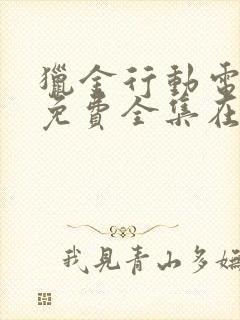 獵金行動電
免費全集在
我見青山多嫵